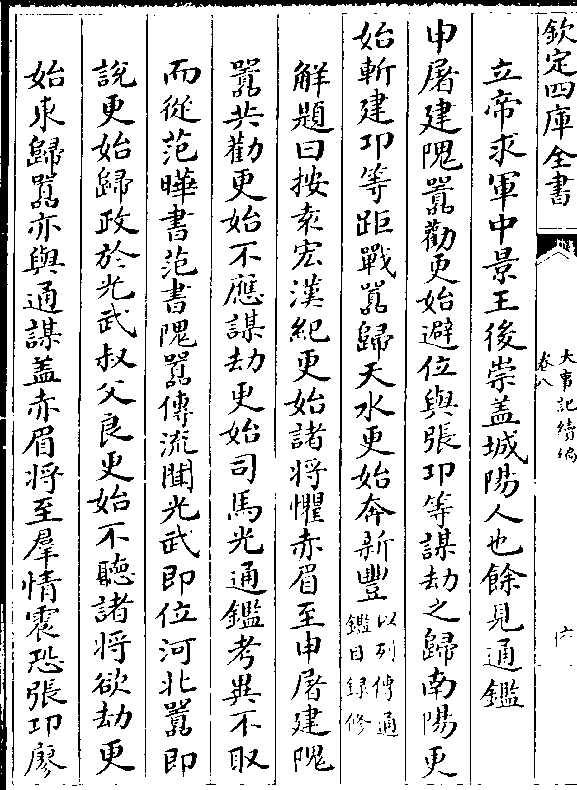 欽定四庫全書
大事記續編
卷八
六
立帝求軍中景王後崇盖城陽人也餘見通鑑
申屠建隗囂勸更始避位與張卬等謀劫之歸南陽更
始斬建卬等距戰囂歸天水更始奔新豐以列傳通鑑目録修
解題曰按袁宏漢紀更始諸将懼赤眉至申屠建隗
囂共勸更始不應謀劫更始司馬光通鑑考異不取
而從范曄書范書隗囂傳流聞光武即位河北囂即
說更始歸政於光武叔父良更始不聽諸将欲劫更
始東歸囂亦與通謀盖赤眉将至羣情震恐張卬廖